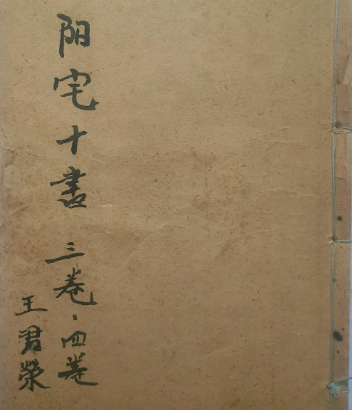 阳宅十書 三卷·四卷
王君榮